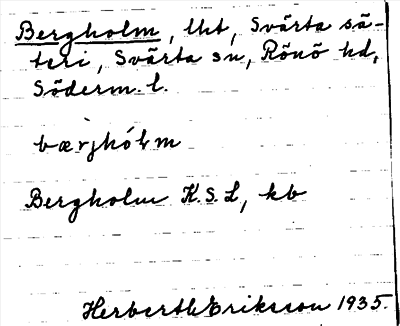 Bergholm, lht, Svärta sä-
teri, Svärta sn, Rönö hd,
Söderm. l.
bærjhólm
Bergholm K.S.L, kb
Herbert Eriksson 1935.